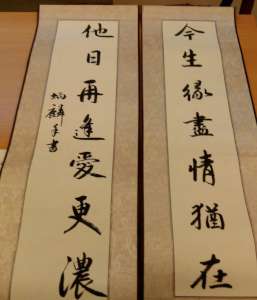 今生緣盡情猶在
他日再逢愛更濃
炳麟手書